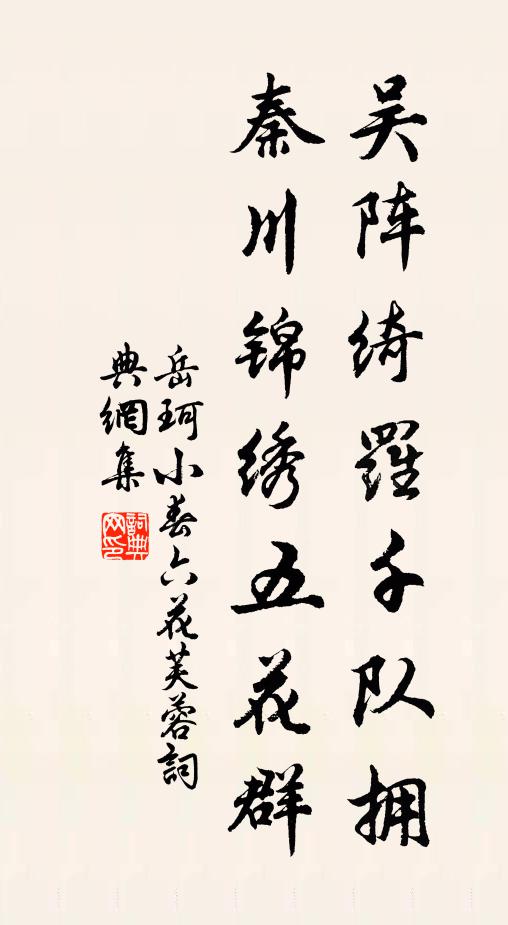 吴阵绮羅千队拥
秦川锦绣五花群
岳珂小春六花芙蓉詞
典網集
詞典网印